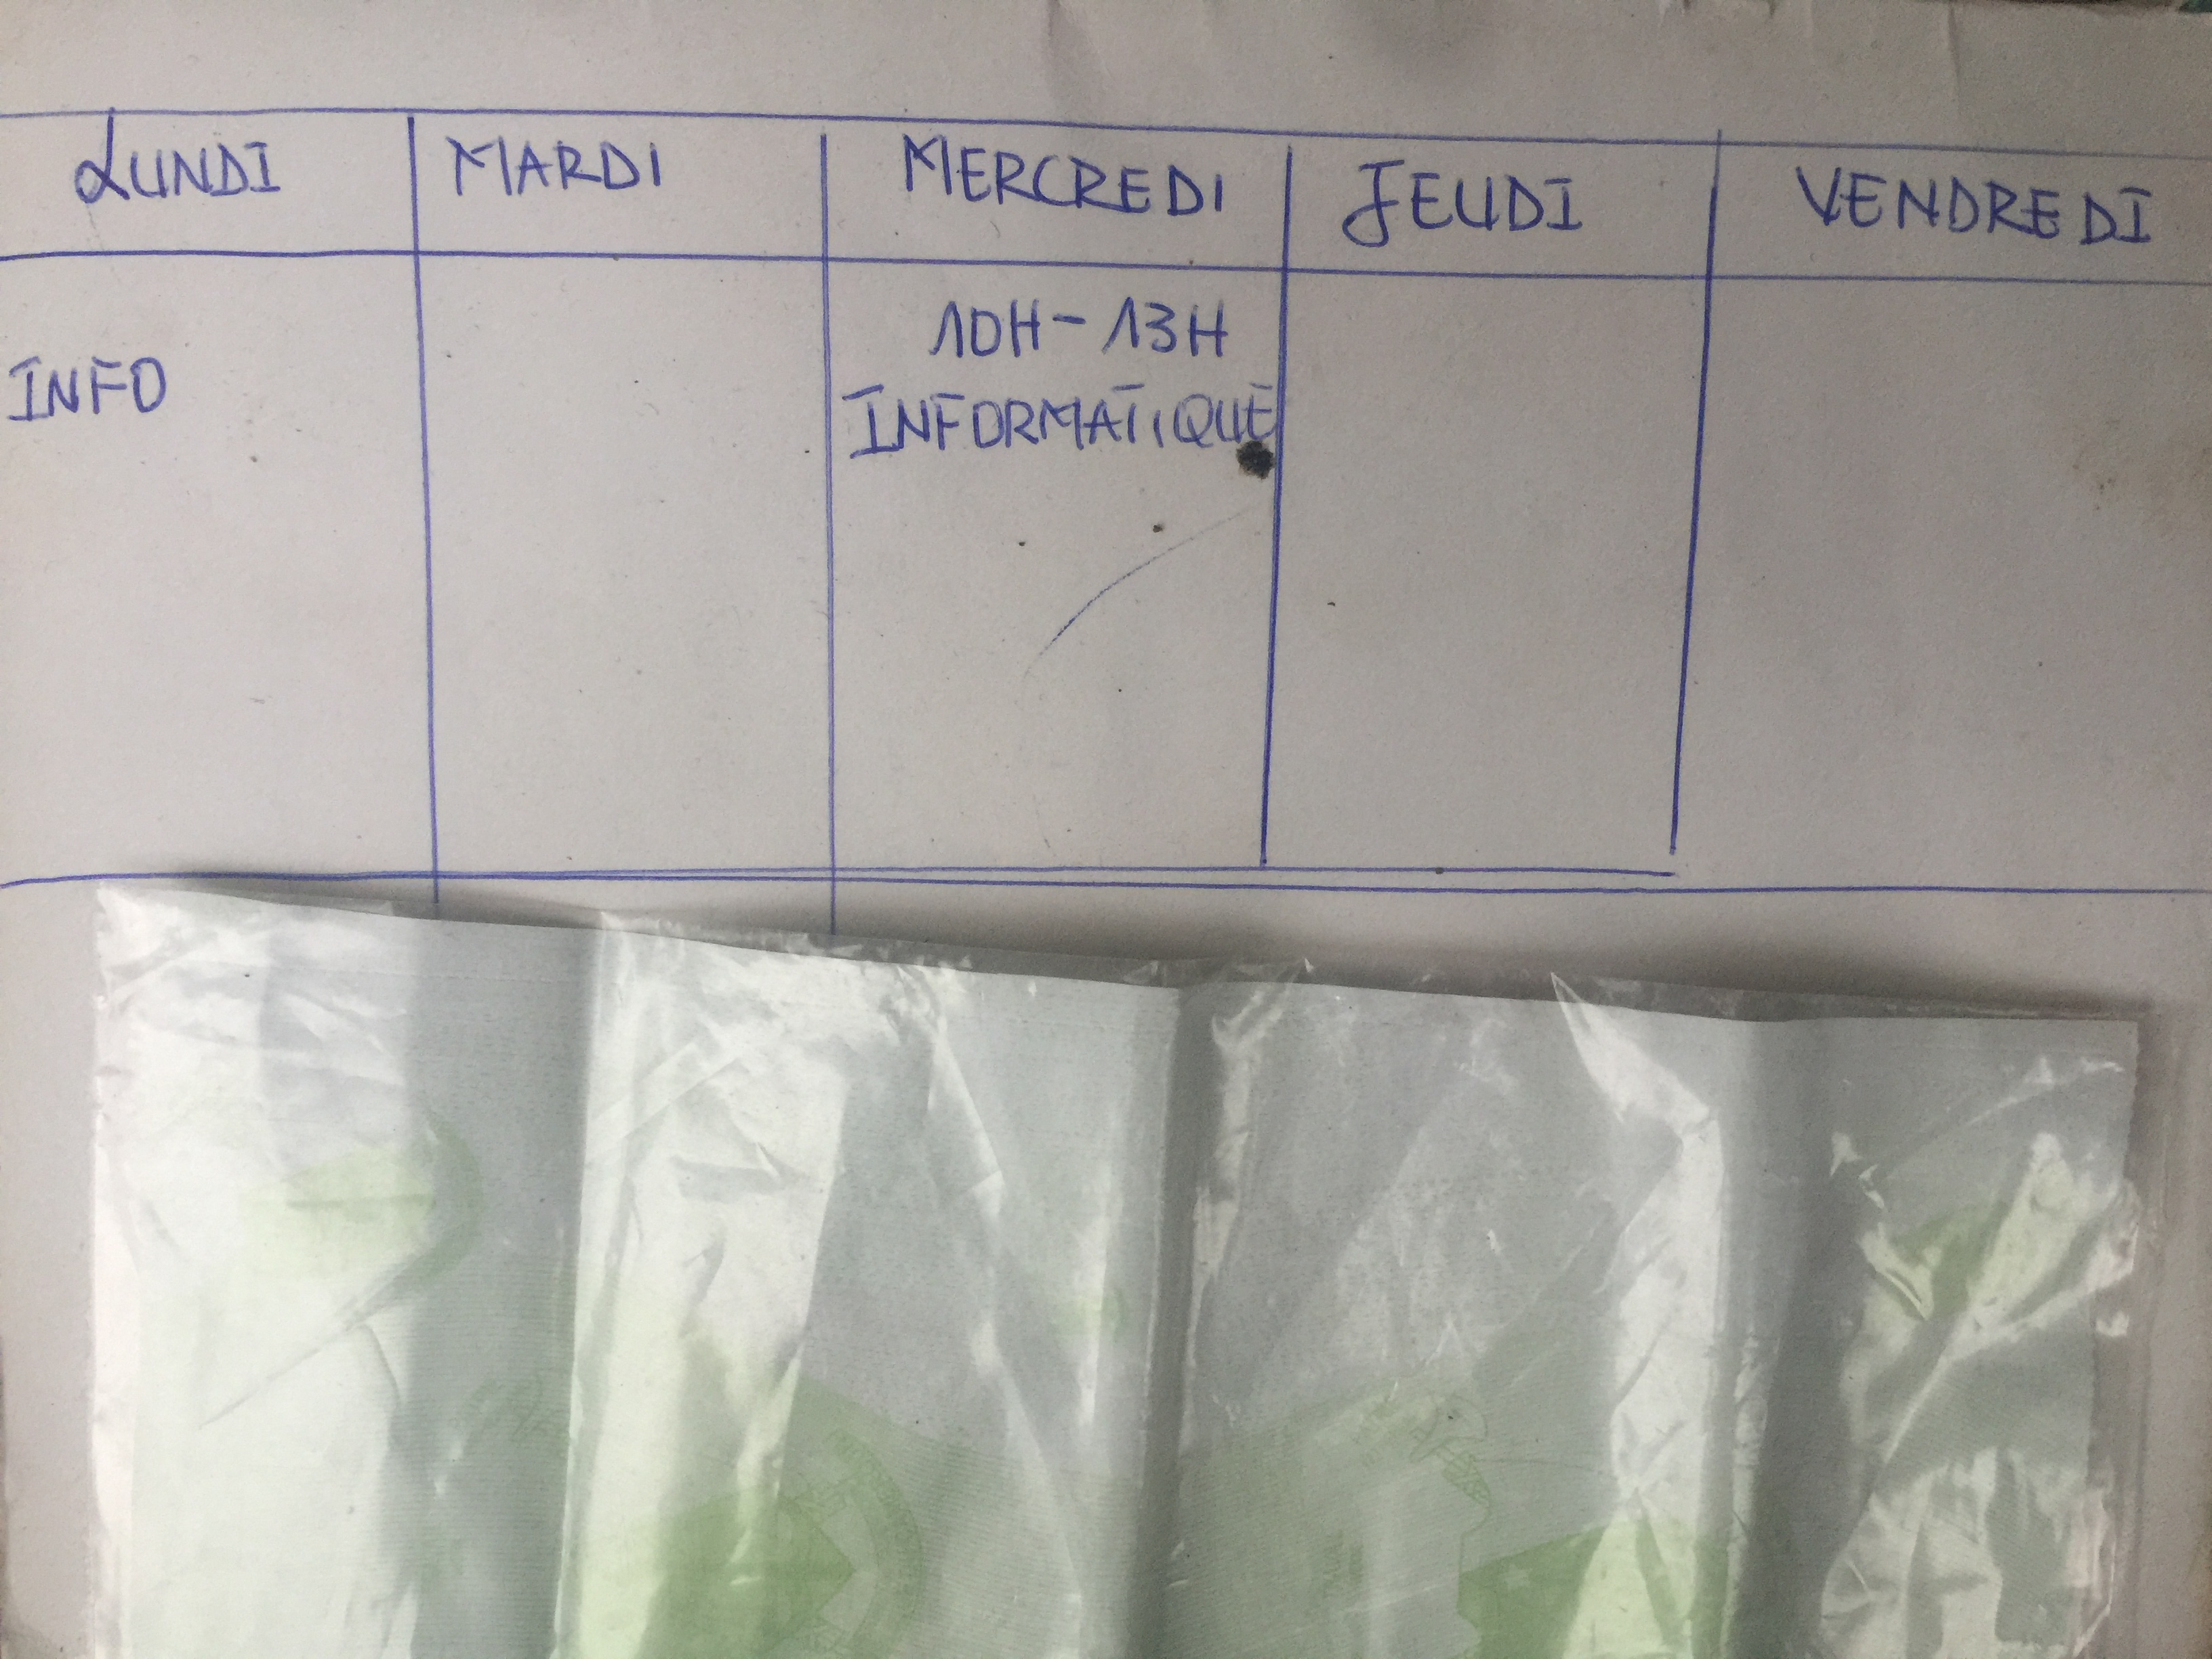 LUNDI MARDI MERCREDI JEUDI VENDREDI
10H-13H
INFO INFORMATIQUE